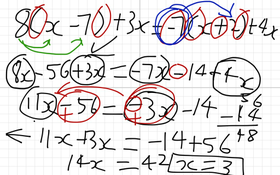 8(x - 7) + 3x = -7(x + 2) + 4x
8x - 56 + 3x = -7x - 14 + 4x
11x - 56 = -3x - 14
56
- 14
48
← 11x + 3x = -14 + 56
14x = 42 x = 3